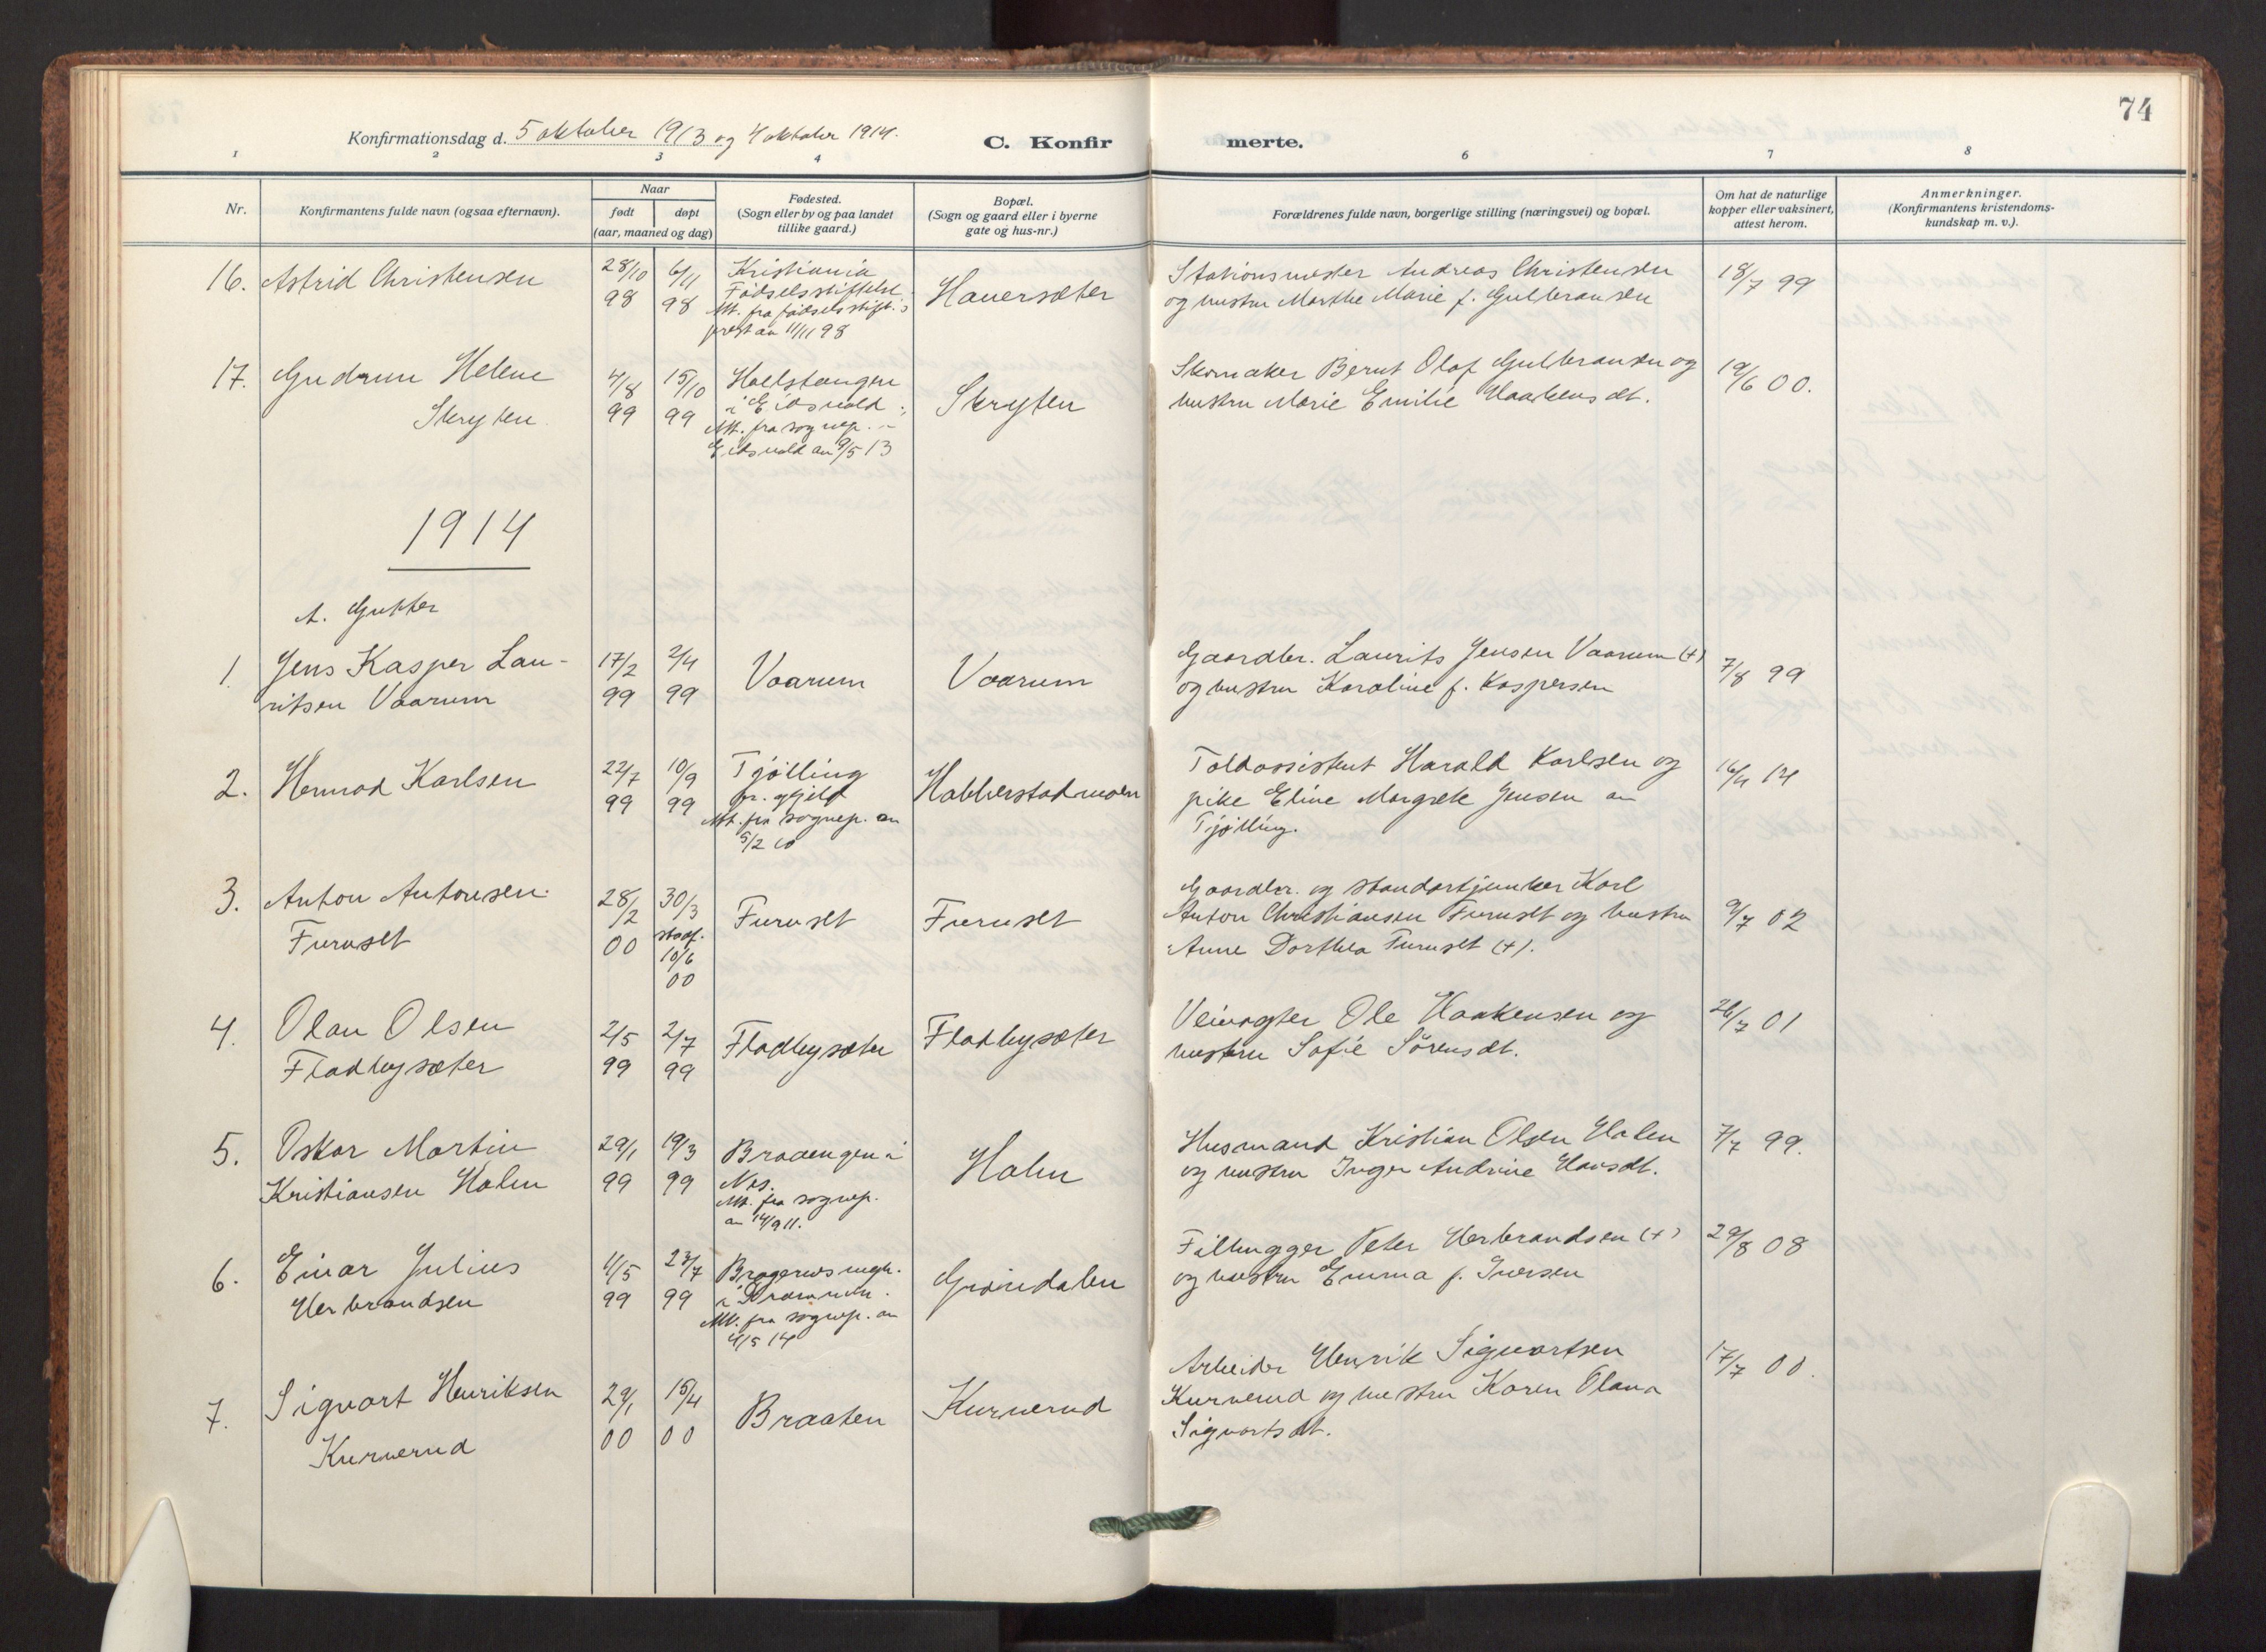 74
Konfirmationsdag d. 5 oktober 1913 og 4 oktober 1914.
C. Konfirmerte.
1 2 3 4 6 7 8
Nr.
Konfirmantens fulde navn (ogsaa efternavn).
Naar
født
døpt
(aar, maaned og dag)
Fødested.
(Sogn eller by og paa landet
tillike gaard.)
Bopæl.
(Sogn og gaard eller i byerne
gate og hus-nr.)
Forældrenes fulde navn, borgerlige stilling (næringsvei) og bopæl.
Om hat de naturlige
kopper eller vaksinert,
attest herom.
Anmerkninger.
(Konfirmantens kristendoms-
kundskap m. v.).
16. Astrid Christensen
28/10
98
6/11
98
Kristiania
Fødselsstiftelse.
Att. fra fødselsstift.s
prest av 11/11 98
Hauersæter
Stationsmester Andreas Christensen
og hustru Marthe Marie f. Gulbrandsen
18/7 99
17. Gudrun Helene
Skryten
4/8
99
15/10
99
Hoelstangen
i Eidsvold.
Att. fra sognep. i
Eidsvold av 9/5 13
Skryten
Skomaker Bernt Olaf Gulbransen og
hustru Marie Emilie Haakensdt.
19/6 00.
1914
A. Gutter
1. Jens Kasper Lau-
ritsen Vaarum
17/2
99
2/4
99
Vaarum
Vaarum
Gaardbr. Laurits Jensen Vaarum (+)
og hustru Karoline f. Kaspersen
7/8 99
2. Hennad Karlsen
22/7
99
10/9
99
Tjølling
pr.gjeld
Att. fra sognep. av
5/2 10
Habberstadmoen
Toldassistent Harald Karlsen og
pike Eline Margrete Jensen av
Tjølling.
16/4 14
3. Anton Antonsen
Furuset
28/2
00
30/3
stadf.
10/6
00
Furuset
Furuset
Gaardbr. og standartjunker Karl
Anton Christiansen Furuset og hustru
Anne Dorthea Furuset (+).
9/7 02
4. Olav Olsen
Fladbysæter
2/5
99
2/7
99
Fladbysæter
Fladbysæter
Veivogter Ole Haakensen og
hustru Sofie Sörensdt.
26/7 01
5. Oskar Martin
Kristiansen Holm
29/1
99
19/3
99
Braaengen i
Nes.
Att. fra sognep.
av 14/9 11.
Holm
Husmand Kristian Olsen Holm
og hustru Inger Andrine Hansdt.
7/7 99.
6. Einar Julius
Herbrandsen
4/5
99
23/7
99
Bragernes mgh.
i Drammen.
Att. fra sognep. av
4/5 14
Gröndalen
Filhugger Peter Herbrandsen (+)
og hustru Emma f. Iversen
29/8 08
7. Sigvart Henriksen
Kurverud
29/1
00
15/4
00
Braaten
Kurverud
Arbeider Henrik Sigvartsen
Kurverud og hustru Karen Olava
Sigvartsdt.
17/7 00.